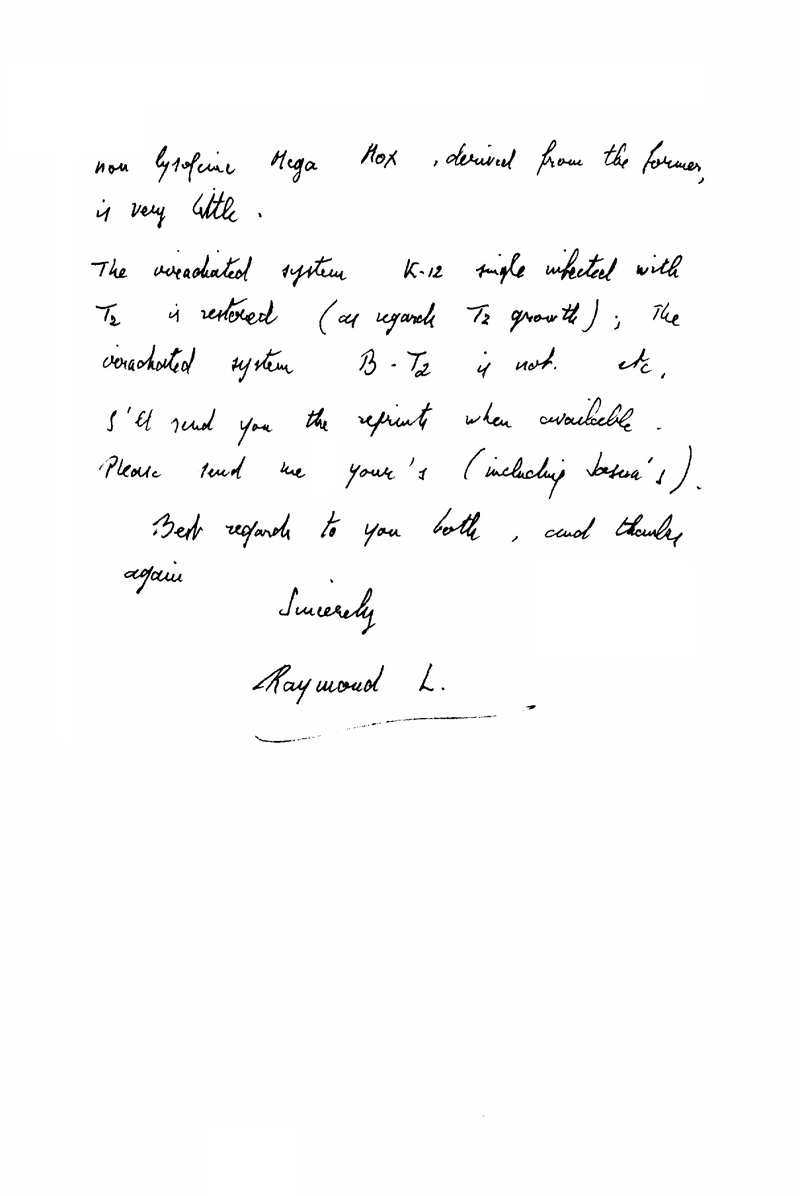 non lysogenic Mega Mox, derived from the former,
is very little.
The irradiated system K-12 single infected with
T2 is restored (as regards T2 growth); The
irradiated system B-T2 is not. etc.
I'll send you the reprints when available.
Please send me your's (including 's).
Best regards to you both, and thanks
again
Sincerely
Raymond L.